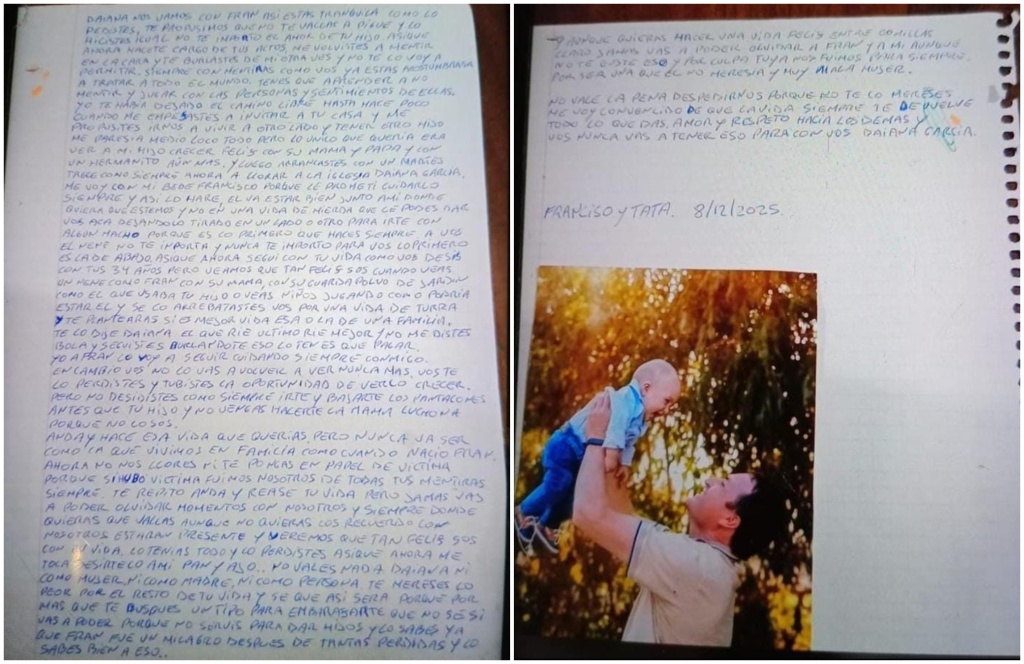 DAIANA NOS VAMOS CON FRAN ASI ESTAS TRANQUILA COMO LO
PEDISTES, TE PROPUSIMOS QUE NO TE VALLAS A PIQUE Y LO
HICISTES IGUAL NO TE INPORTO EL AMOR DE TU HIJO ASIQUE
AHORA HACETE CARGO DE TUS ACTOS, ME VOLVISTES A MENTIR
EN LA CARA Y TE BURLASTES DE MI OTRA VES Y NO TE LO VOY A
PERMITIR, SIEMPRE CON MENTIRAS COMO VOS YA ESTAS ACOSTUMBRADA
A TRATAR A TODO EL MUNDO. TENES QUE APRENDER A NO
MENTIR Y JUGAR CON LAS PERSONAS Y SENTIMIENTOS DE ELLAS.
YO TE HABIA DEJADO EL CAMINO LIBRE HASTA HACE POCO
CUANDO ME EMPESASTES A INVITAR A TU CASA Y ME
PROPUSITES IRNOS A VIVIR A OTRO LADO Y TENER OTRO HIJO
ME PARESIA MEDIO LOCO TODO PERO LO UNICO QUE QUERIA ERA
VER A MI HIJO CRECER FELIS CON SU MAMA Y PAPA Y CON
UN HERMANITO AÚN MAS. Y LUEGO ARRANCASTES CON UN MARTES
TRECE COMO SIEMPRE AHORA A LLORAR A LA IGLESIA DAIANA GARCIA.
ME VOY CON MI BEBE FRANCISCO PORQUE LE PROMETI CUIDARLO
SIEMPRE Y ASI LO HARE, EL VA ESTAR BIEN JUNTO AMI DONDE
QUIERA QUE ESTEMOS Y NO EN UNA VIDA DE MIERDA QUE LE PODES DAR
VOS ACA DEJANDOLO TIRADO EN UN LADO O OTRO PARA IRTE CON
ALGUN MACHO PORQUE ES LO PRIMERO QUE HACES SIEMPRE A VOS
EL NENE NO TE INPORTA Y NUNCA TE IMPORTO PARA VOS LO PRIMERO
ES LA DE ABAJO, ASIQUE AHORA SEGUI CON TU VIDA COMO VOS DESIS
CON TUS 34 AÑOS PERO VEAMOS QUE TAN FELIS SOS CUANDO VEAS
UN NENE COMO FRAN CON SU MAMA, CON SU GUARDAPOLVO DE JARDIN
COMO EL QUE USABA TU HIJO O VEAS NIÑOS JUGANDO COMO PODRIA
ESTAR EL Y SE LO ARREBATASTES VOS POR UNA VIDA DE TURRA
Y TE PLANTEARAS SI ES MEJOR VIDA ESA O LA DE UNA FAMILIA.
TE LO DIJE DAIANA EL QUE RIE ULTIMO RIE MEJOR Y NO ME DISTES
BOLA Y SEGUISTES BURLANDOTE ESO LO TENES QUE PAGAR.
YO A FRAN LO VOY A SEGUIR CUIDANDO SIEMPRE CONMIGO.
EN CAMBIO VOS NO LO VAS A VOLVER A VER NUNCA MAS. VOS TE
LO PERDISTES Y TUBISTES LA OPORTUNIDAD DE VERLO CRECER.
PERO NO DESIDISTES COMO SIEMPRE IRTE Y BAJARTE LOS PANTALONES
ANTES QUE TU HIJO Y NO VENGAS HACERTE LA MAMA LUCHONA
PORQUE NO LO SOS.
ANDA Y HACE ESA VIDA QUE QUERIAS, PERO NUNCA VA SER
COMO LA QUE VIVIMOS EN FAMILIA COMO CUANDO NACIO FRAN.
AHORA NO NOS LLORES NI TE PONGAS EN PAPEL DE VICTIMA
PORQUE SI HUBO VICTIMA FUIMOS NOSOTROS DE TODAS TUS MENTIRAS
SIEMPRE. TE REPITO ANDA Y REASE TU VIDA PERO JAMAS VAS
A PODER OLVIDAR MOMENTOS CON NOSOTROS Y SIEMPRE DONDE
QUIERAS QUE VALLAS AUNQUE NO QUIERAS LOS RECUERDO CON
NOSOTROS ESTARAN PRESENTE Y VEREMOS QUE TAN FELIS SOS
CON TU VIDA. LO TENIAS TODO Y LO PERDISTES ASIQUE AHORA ME
TOCA DESIRTELO AMI PAN Y AJO.. NO VALES NADA DAIANA NI
COMO MUJER, NI COMO MADRE, NI COMO PERSONA TE MERESES LO
PEOR POR EL RESTO DE TU VIDA Y SE QUE ASI SERA PORQUE POR
MAS QUE TE BUSQUES UN TIPO PARA EMBARASARTE QUE NO SÉ SI
VAS A PODER PORQUE NO SERVIS PARA DAR HIJOS Y LO SABES YA
QUE FRAN FUE UN MILAGRO DESPUES DE TANTAS PERDIDAS Y LO
SABES BIEN A ESO..
Y AUNQUE QUIERAS HACER UNA VIDA FELIS ENTRE COMILLAS
CLARO JAMAS VAS A PODER OLVIDAR A FRAN Y A MI AUNQUE
NO TE GUSTE ESO Y POR CULPA TUYA NOS FUIMOS PARA SIEMPRE.
POR SER UNA QUE EL NO MERESIA Y MUY MALA MUJER.
NO VALE LA PENA DESPEDIRNOS PORQUE NO TE LO MERESES
ME VOY CONVENCIDO DE QUE LA VIDA SIEMPRE TE DEVUELVE
TODO LO QUE DAS, AMOR Y RESPETO HACIA LOS DEMAS Y
VOS NUNCA VAS A TENER ESO PARA CON VOS DAIANA GARCIA.
FRANCISO Y TATA. 8/12/2025.